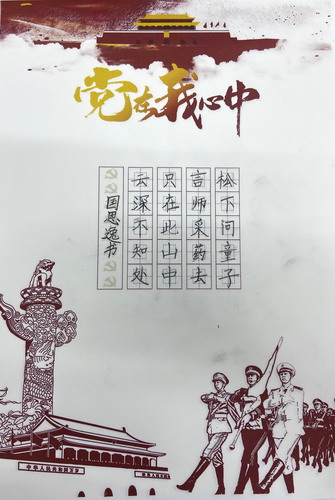 党在我心中
松下问童子
言师采药去
只在此山中
云深不知处
国思逸书
中华人民共和国万岁